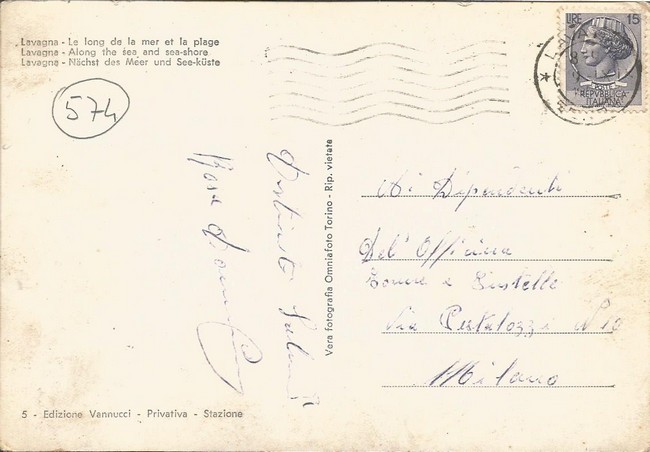 Lavagna - Le long de la mer et la plage
Lavagna - Along the sea and sea-shore
Lavagna - Nächst das Meer und See-küste
574
LIRE 15
POSTE
REPVBBLICA
ITALIANA
Distinti Saluti
Rosa
Vera fotografia Omniafoto Torino - Rip. vietate
Ai Dipendenti
Del' Officina
e
Via Pestalozzi N 10
Milano
5 - Edizione Vannucci - Privativa - Stazione